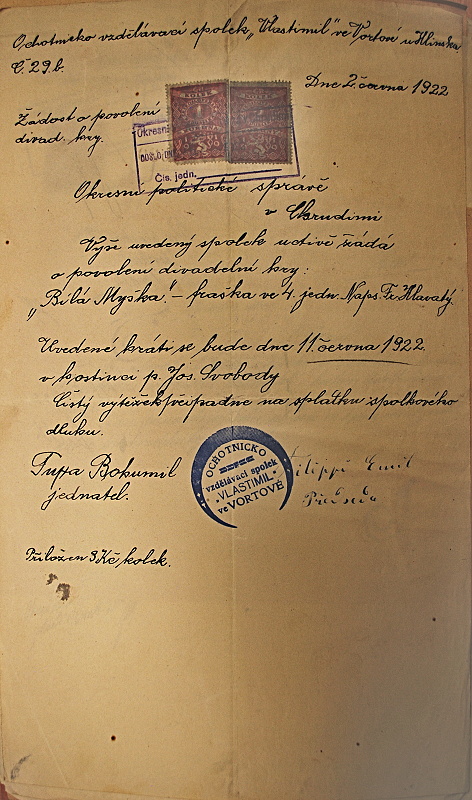 Ochotnicko vzdělávací spolek „Vlastimil" ve Vortové u Hlinska
Č. 29.b.
Dne 2. června 1922
Žádost o povolení
divad. hry.
KOLEK
KOLEK
Okresní
DOŠLO DNE
Čís. jedn.
Okresní politické správě
v Chrudimi
Výše uvedený spolek uctivě žádá
o povolení divadelní hry:
„Bílá Myška". – fraška ve 4. jedn. Naps. Fr. Hlavatý.
Uvedené hráti se bude dne 11. června 1922.
v hostinci p. Jos. Svobody
Čistý výtěžek připadne na splátku spolkového
dluhu.
Tuppa Bohumil
jednatel.
OCHOTNICKO
vzdělávací spolek
„VLASTIMIL"
ve VORTOVÉ
Filippi Emil
Předseda
Přiložen 3 Kč kolek.